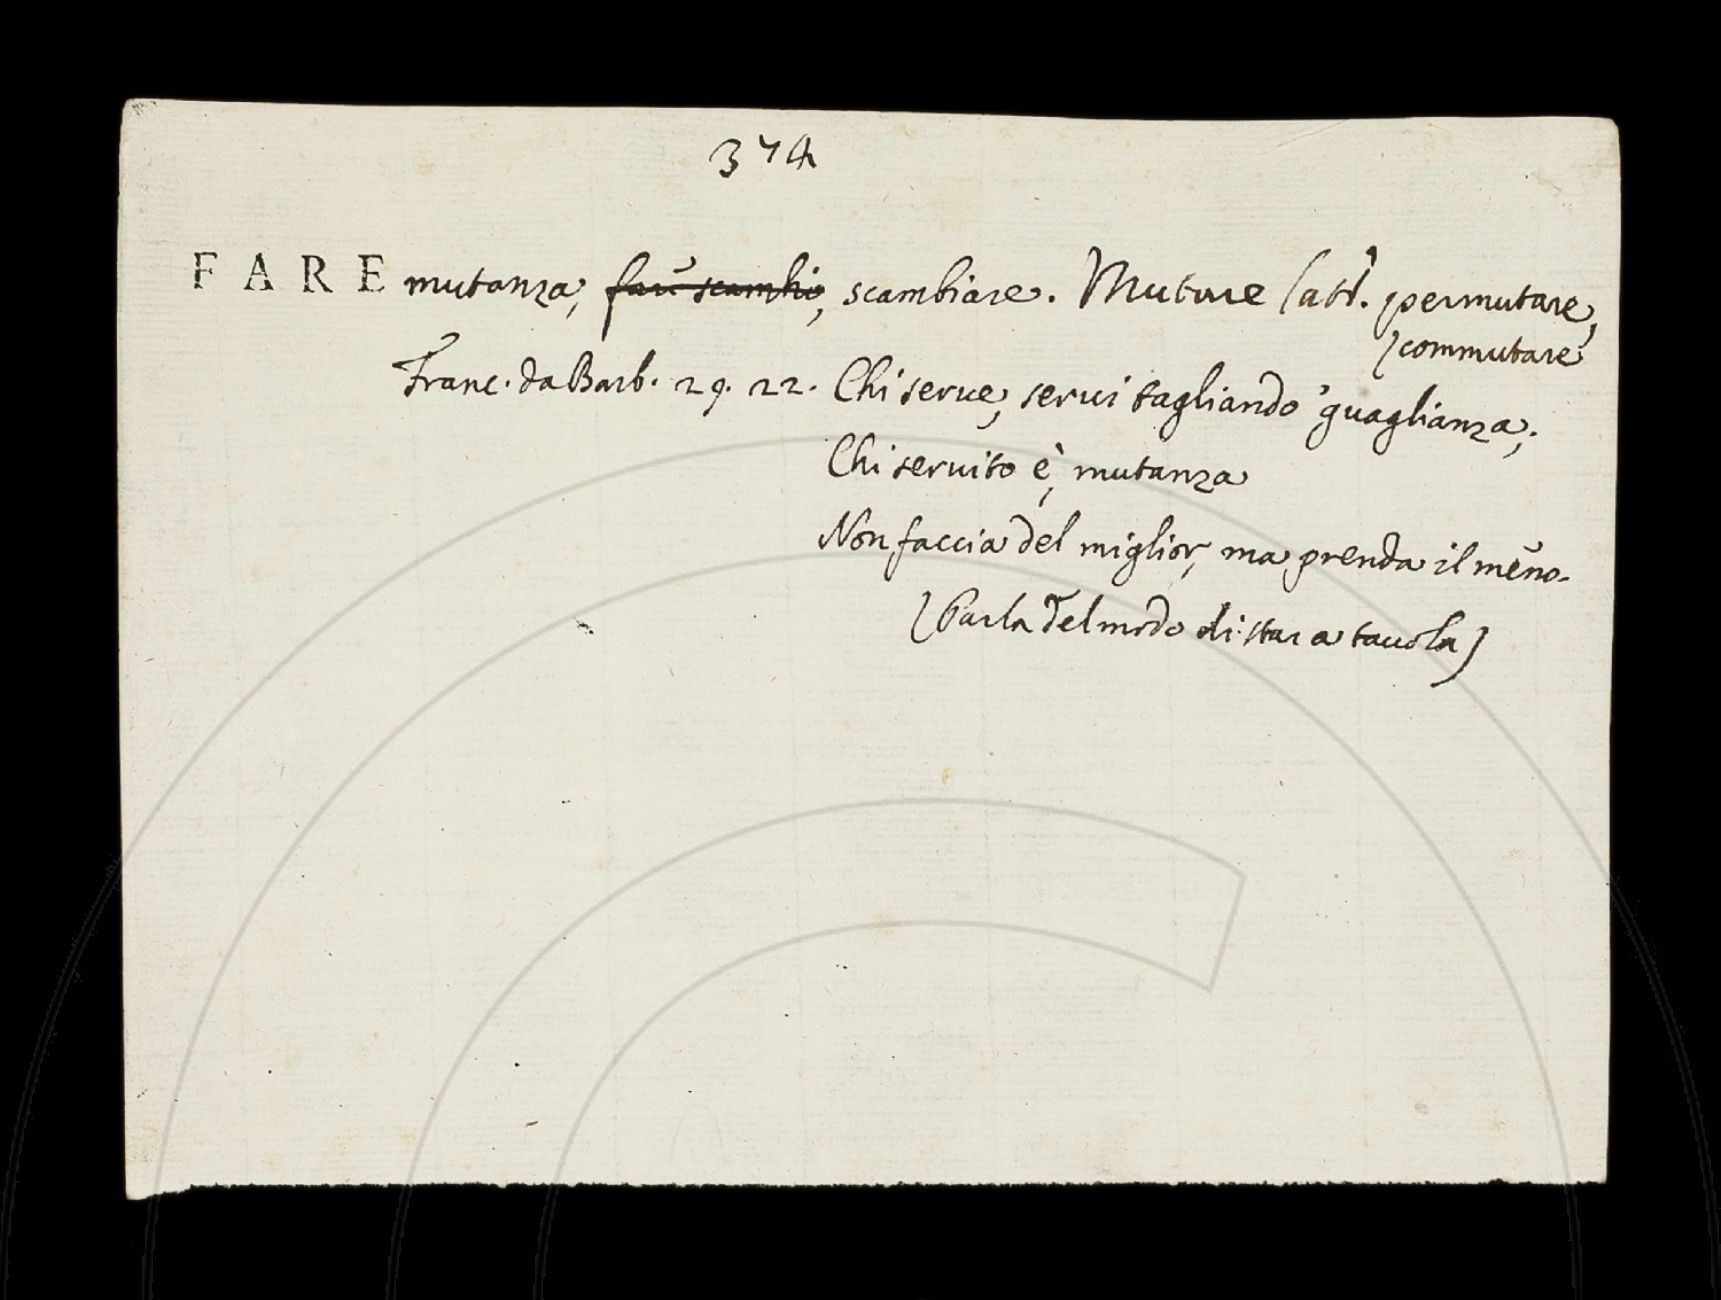 374
FARE mutanza, far scambio, scambiare. Mutare lat. permutare,
commutare
Franc. da Barb. 29. 22. Chi serve, servi tagliando 'guaglianza;
Chi servito è, mutanza
Non faccia del miglior, ma prenda il meno.
(Parla del modo di star a tavola)